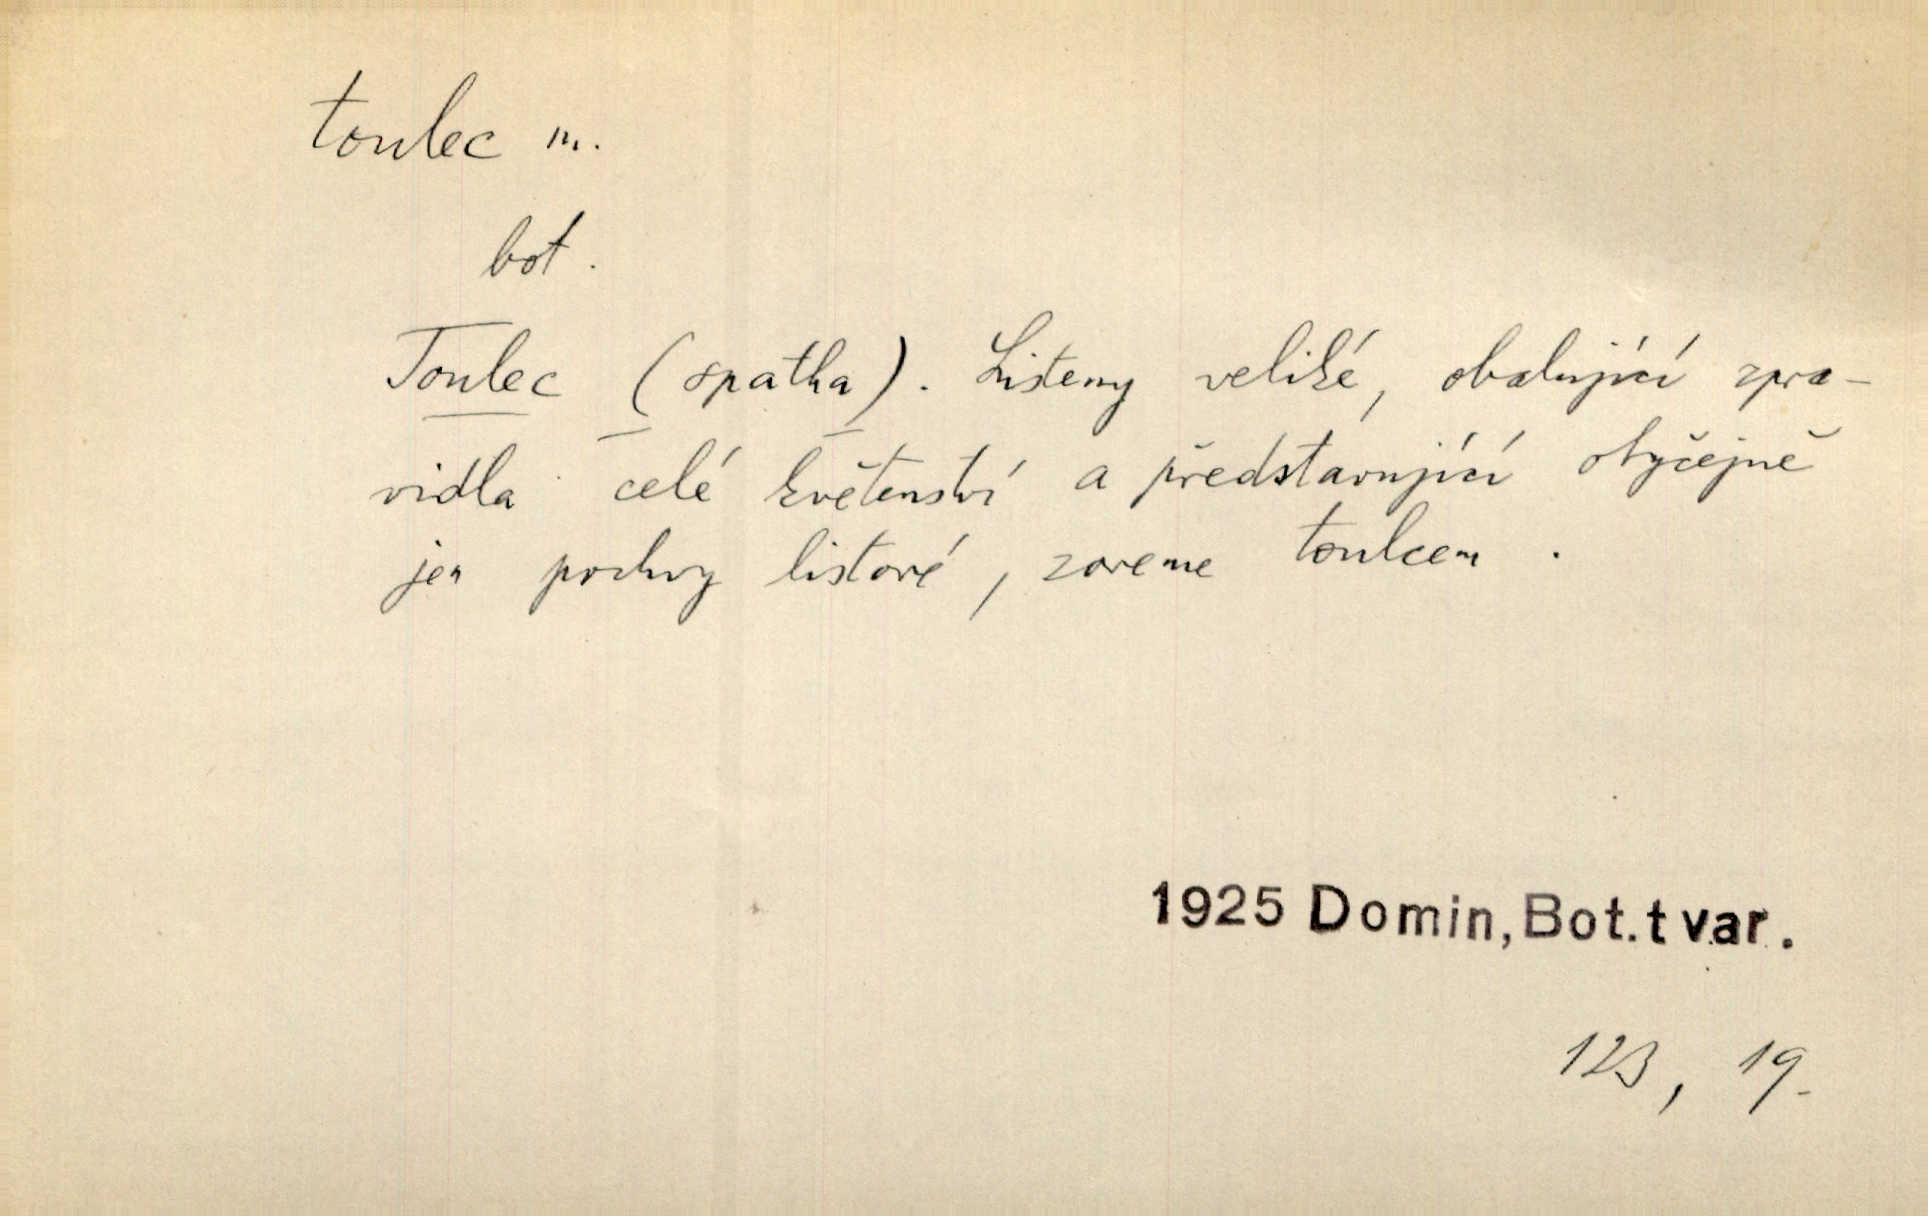 toulec m.
bot.
Toulec (spatha). Listeny veliké, obalující zpra-
vidla celé květenství a představující obyčejně
jen pochvy listové, zoveme toulcem.
1925 Domin, Bot. tvar.
123, 19.